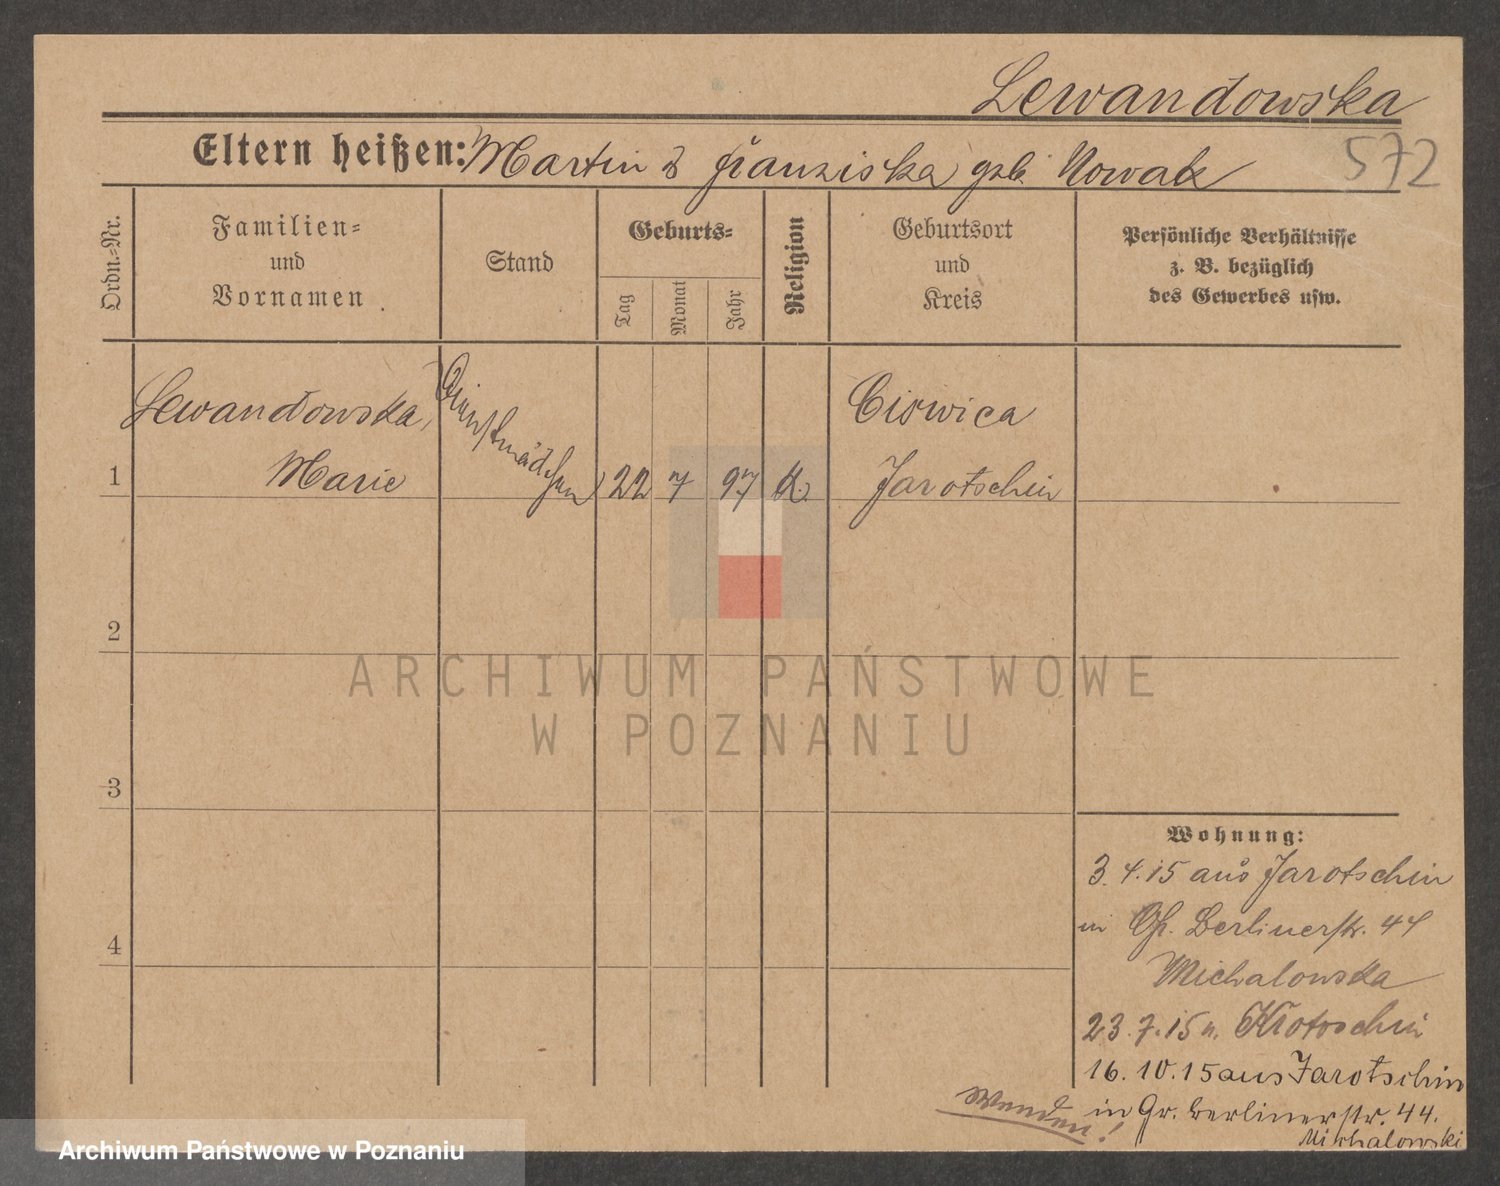 Lewandowska
Eltern heißen: Martin & Franziska geb. Nowak
572
Ordn.=Nr.
Familien=
und
Vornamen
Stand
Geburts=
Tag
Monat
Jahr
Religion
Geburtsort
und
Kreis
Persönliche Verhältnisse
z. B. bezüglich
des Gewerbes usw.
1
Lewandowska,
Marie
Dienstmädchen
22 7 97 K.
Ciswica
Jarotschin
2
3
4
ARCHIWUM PAŃSTWOWE
W POZNANIU
Wohnung:
3.4.15 aus Jarotschin
in Berlinerstr. 44
Michalowska
23.7.15 n. Krotoschin
16.10.15 aus Jarotschin
in Gr. Berlinerstr. 44.
Michalowski
Wenden!
Archiwum Państwowe w Poznaniu